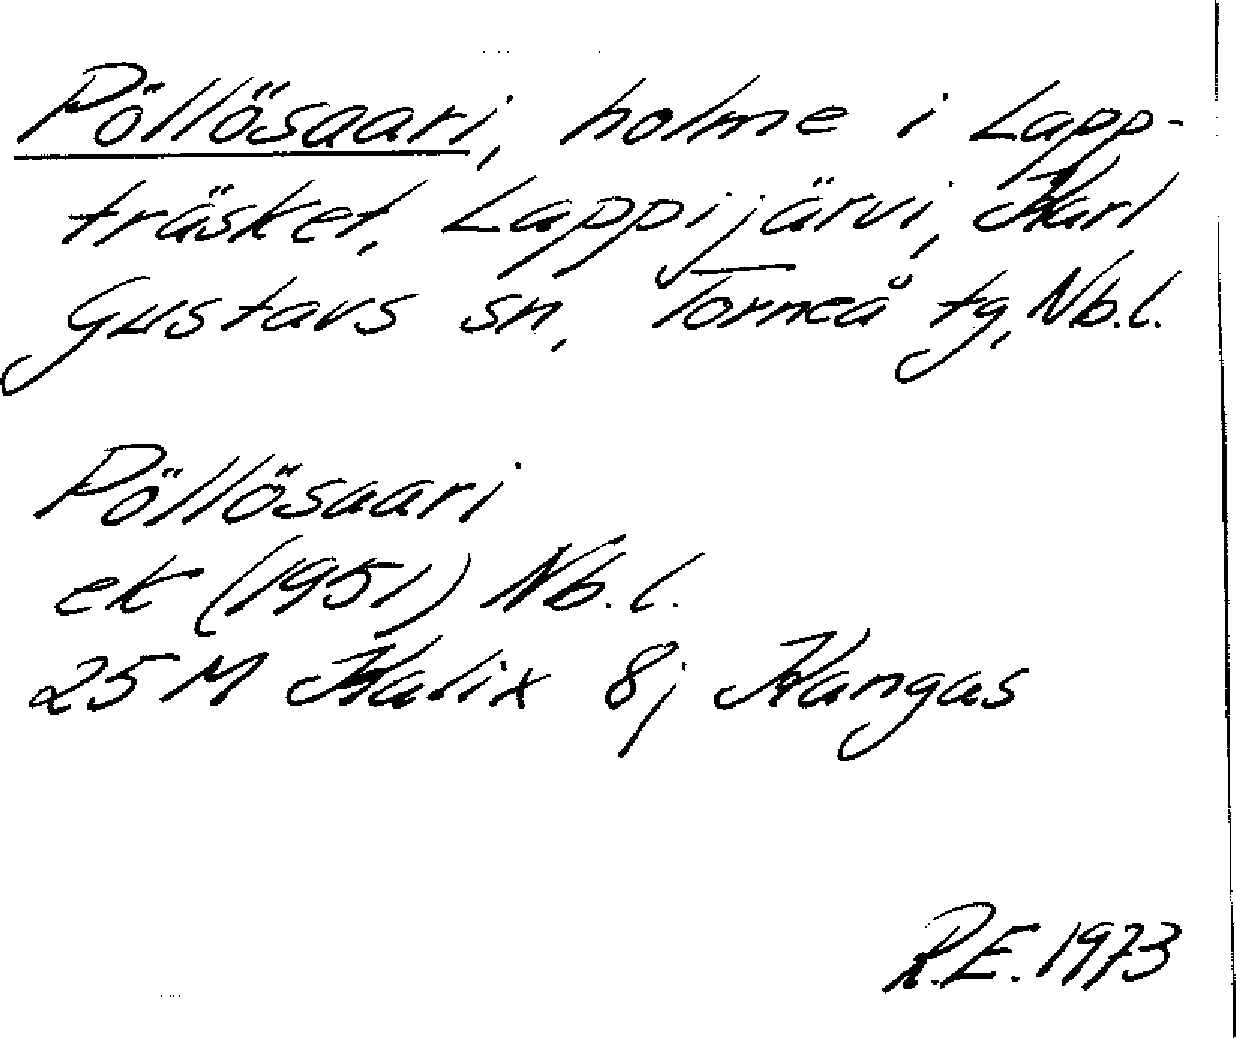 Pöllösaari, holme i Lapp-
träsket, Lappijärvi, Karl
Gustavs sn, Torneå tg, Nb.l.
Pöllösaari
ek (1951) Nb.l.
25 M Kalix 8j Kangas
R.E. 1973